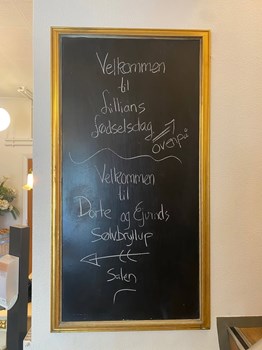 Velkommen
til
Lillians
fødselsdag
ovenpå
Velkommen
til
Dorte og Ejvinds
Sølvbryllup
Salen